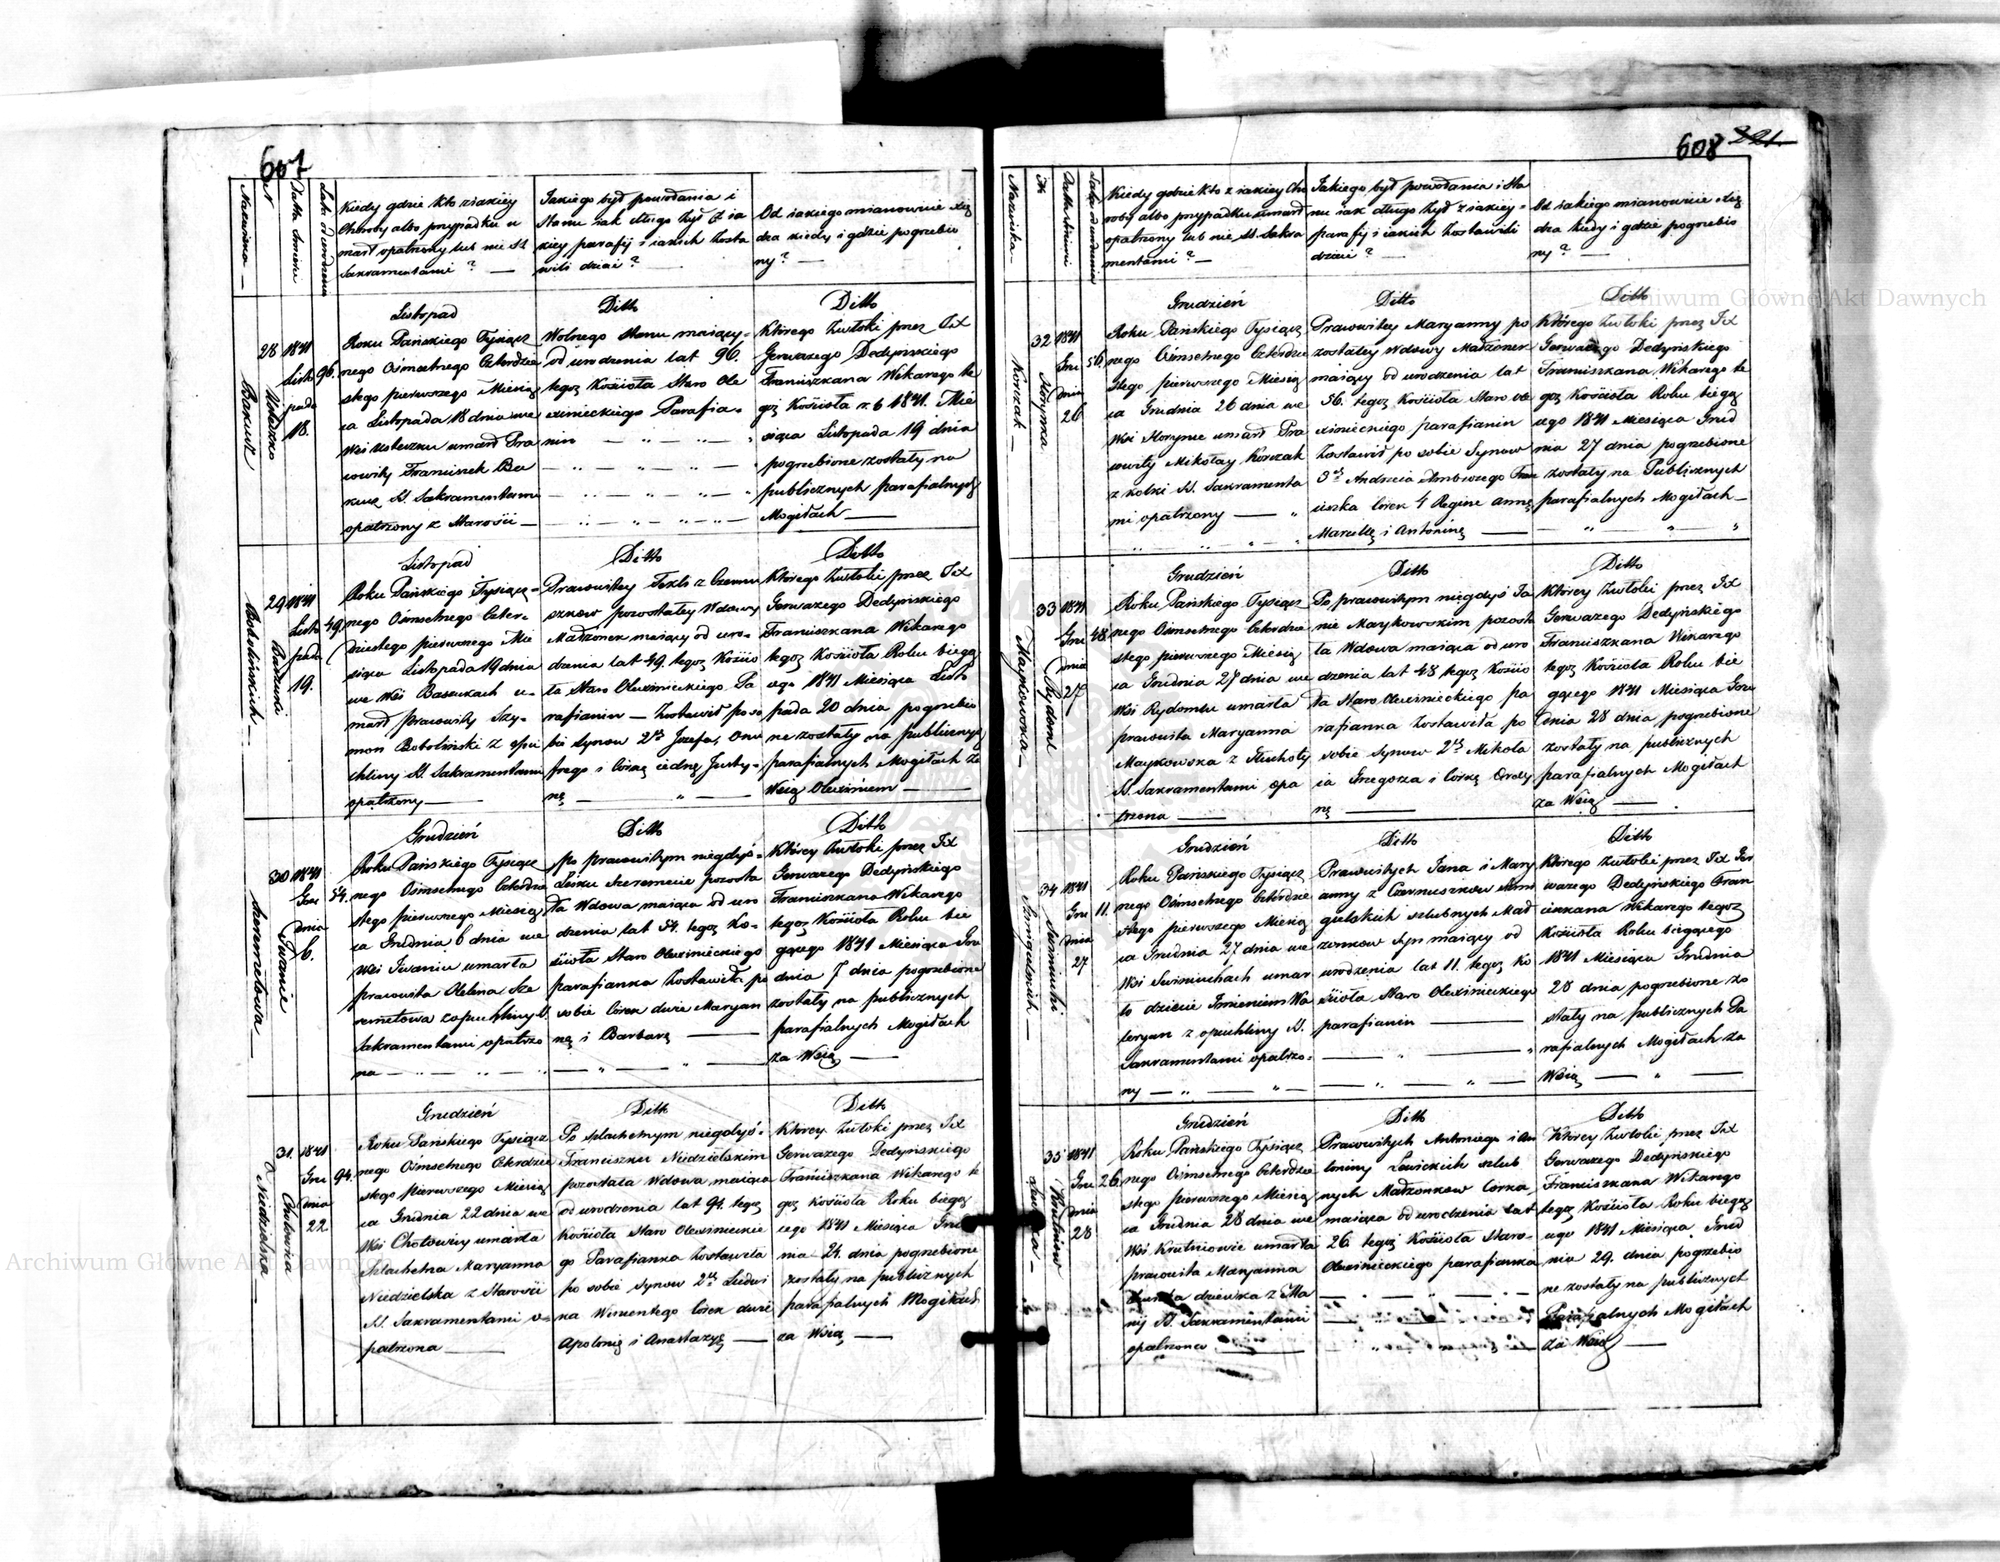 607
Nazwiska
N
Datta Smierci
Lata od urodzenia
Kiedy gdzie kto z iakiey
Choroby albo przypadku u
marł opatrzony lub nie SS.
Sakramentami?
Jakiego był powołania i
Stanu iak długo żył z ia
kiey parafij i iakich zosta
wili dzieci?
Od iakiego mianowicie xię
dza kiedy i gdzie pogrzebio
ny?
28
1841
Listo
pada
18.
96.
Listopad
Roku Pańskiego Tysiącz
nego Ośmsetnego Czterdzie
stego pierwszego Miesią
ca Listopada 18 dnia we
Wsi umarł Pra
cowity Franciszek Ba
SS. Sakramentami
opatrzony z Starości
Ditto
Wolnego stanu maiący
od urodzenia lat 96.
tegoż Kościoła Staro Ole
xinieckiego Parafia
nin
Ditto
Którego Zwłoki przez JX
Gerwazego Dedyńskiego
Franciszkana Wikarego te
goż Kościoła r. b 1841. Mie
siąca Listopada 19 dnia
pogrzebione zostały na
publicznych parafialnych
Mogiłach
29
1841
Listo
pada
19.
49.
Bobolińskich
Listopad
Roku Pańskiego Tysiącz
nego Ośmsetnego Czter
dziestego pierwszego Mie
siąca Listopada 19 dnia
we Wsi Basukach u
marł pracowity Szy
mon Boboliński z opu
chliny SS. Sakramentami
opatrzony
Ditto
Pracowitey Tekli z Czernu
szkow pozostałey Wdowy
Małżonek maiący od uro
dzenia lat 49. tegoż Kościo
ła Staro Olexinieckiego Pa
rafianin Zostawił po so
bie Synow 2ch Jozefa, Onu
frego i Corkę iednę Justy
nę
Ditto
Którego Zwłoki przez JX
Gerwazego Dedyńskiego
Franciszkana Wikarego
tegoż Kościoła Roku bieżą
cego 1841 Miesiąca Listo
pada 20 dnia pogrzebio
ne zostały na publicznych
parafialnych Mogiłach za
Wsią Olexińcem
30
1841
Gru
dnia
6.
54.
Iwanie
Szeremetowa
Grudzień
Roku Pańskiego Tysiącz
nego Ośmsetnego Czterdzie
stego pierwszego Miesią
ca Grudnia 6 dnia we
Wsi Iwaniu umarła
pracowita Olelena Sze
remetowa z opuchliny SS.
Sakramentami opatrzo
na
Ditto
Po pracowitym niegdyś
Leśku Szeremecie pozosta
ła Wdowa maiąca od uro
dzenia lat 54. tegoż Ko
ścioła Staro Olexinieckiego
parafianka Zostawiła po
sobie Corek dwie Maryan
nę i Barbarę
Ditto
Którey Zwłoki przez JX
Gerwazego Dedyńskiego
Franciszkana Wikarego
tegoż Kościoła Roku bie
gącego 1841 Miesiąca Gru
dnia 7 dnia pogrzebione
zostały na publicznych
parafialnych Mogiłach
za Wsią
31.
1841
Gru
dnia
22
94.
Niedzielska
Grudzień
Roku Pańskiego Tysiącz
nego Ośmsetnego Czterdzie
stego pierwszego Miesią
ca Grudnia 22 dnia we
Wsi Chołowicy umarła
Szlachetna Maryanna
Niedzielska z Starości
SS. Sakramentami o
patrzona
Ditto
Po szlachetnym niegdyś
Franciszku Niedzielskim
pozostała Wdowa maiąca
od urodzenia lat 94. tegoż
Kościoła Staro Olexinieckie
go Parafianka Zostawiła
po sobie Synow 2ch Ludwi
ka Wincentego Corek dwie
Apolonię i Anastazyę
Ditto
Którey Zwłoki przez JX
Gerwazego Dedyńskiego
Franciszkana Wikarego te
goż Kościoła Roku bieżą
cego 1841 Miesiąca Grud
nia 24. dnia pogrzebione
zostały na publicznych
parafialnych Mogiłach
za Wsią
608 221.
Nazwiska
N
Datta Smierci
Lata od urodzenia
Kiedy gdzie kto z iakiey Cho
roby albo przypadku umarł
opatrzony lub nie SS. Sakra
mentami?
Jakiego był powołania i Sta
nu iak długo żył z iakiey
parafij i iakich zostawili
dzieci?
Od iakiego mianowicie xię
dza kiedy i gdzie pogrzebio
ny?
32
1841
Gru
dnia
26
56.
Horynka
Korczak
Grudzień
Roku Pańskiego Tysiącz
nego Ośmsetnego Czterdzie
stego pierwszego Miesią
ca Grudnia 26 dnia we
Wsi Horynce umarł Pra
cowity Mikołay Korczak
z kolki SS. Sakramenta
mi opatrzony
Ditto
Pracowitey Maryanny po
zostałey Wdowy Małżonek
maiący od urodzenia lat
56. tegoż Kościoła Staro Ole
xinieckiego parafianin
Zostawił po sobie Synow
3ch Andrzeia Ambrożego Fran
ciszka Corek 4 Reginę Annę
Marcellę i Antoninę
Ditto
Którego Zwłoki przez JX
Gerwazego Dedyńskiego
Franciszkana Wikarego te
goż Kościoła Roku bieżą
cego 1841 Miesiąca Grud
nia 27 dnia pogrzebione
zostały na Publicznych
parafialnych Mogiłach
33
1841
Gru
dnia
27
48.
Rydoml
Maykowska
Grudzień
Roku Pańskiego Tysiącz
nego Ośmsetnego Czterdzie
stego pierwszego Miesią
ca Grudnia 27 dnia we
Wsi Rydomlu umarła
pracowita Maryanna
Maykowska z Suchoty
SS. Sakramentami opa
trzona
Ditto
Po pracowitym niegdyś Ja
nie Maykowskim pozosta
ła Wdowa maiąca od uro
dzenia lat 48 tegoż Kościo
ła Staro Olexinieckiego pa
rafianka Zostawiła po
sobie Synow 2ch Mikoła
ia Grzegorza i Corkę Orody
nę
Ditto
Którey Zwłoki przez JX
Gerwazego Dedyńskiego
Franciszkana Wikarego
tegoż Kościoła Roku bie
gącego 1841 Miesiąca Gru
dnia 28 dnia pogrzebione
zostały na publicznych
parafialnych Mogiłach
za Wsią
34
1841
Gru
dnia
27
11.
Swiniuchi
Grudzień
Roku Pańskiego Tysiącz
nego Ośmsetnego Czterdzie
stego pierwszego Miesią
ca Grudnia 27 dnia we
Wsi Swiniuchach umar
ło dziecie Imieniem Wa
leryan z opuchliny SS.
Sakramentami opatrzo
ny
Ditto
Pracowitych Jana i Mary
anny z Czernuszkow
ślubnych Mał
żonkow Syn maiący od
urodzenia lat 11. tegoż Ko
ścioła Staro Olexinieckiego
parafianin
Ditto
Którego Zwłoki przez JX Ger
wazego Dedyńskiego Fran
ciszkana Wikarego tegoż
Kościoła Roku bieżącego
1841 Miesiąca Grudnia
28 dnia pogrzebione zo
stały na publicznych Pa
rafialnych Mogiłach za
Wsią
35
1841
Gru
dnia
28
26.
Krutniow
Grudzień
Roku Pańskiego Tysiącz
nego Ośmsetnego Czterdzie
stego pierwszego Miesią
ca Grudnia 28 dnia we
Wsi Krutniowie umarła
pracowita Maryanna
dziewka z
SS. Sakramentami
opatrzona
Ditto
Pracowitych Antoniego i An
toniny Lewickich ślub
nych Małżonkow Corka,
maiąca od urodzenia lat
26. tegoż Kościoła Staro
Olexinieckiego parafianka
Ditto
Którey Zwłoki przez JX
Gerwazego Dedyńskiego
Franciszkana Wikarego
tegoż Kościoła Roku bieżą
cego 1841 Miesiąca Grud
nia 29. dnia pogrzebio
ne zostały na publicznych
Parafialnych Mogiłach
za Wsią
Archiwum Główne Akt Dawnych
Archiwum Główne Akt Dawnych